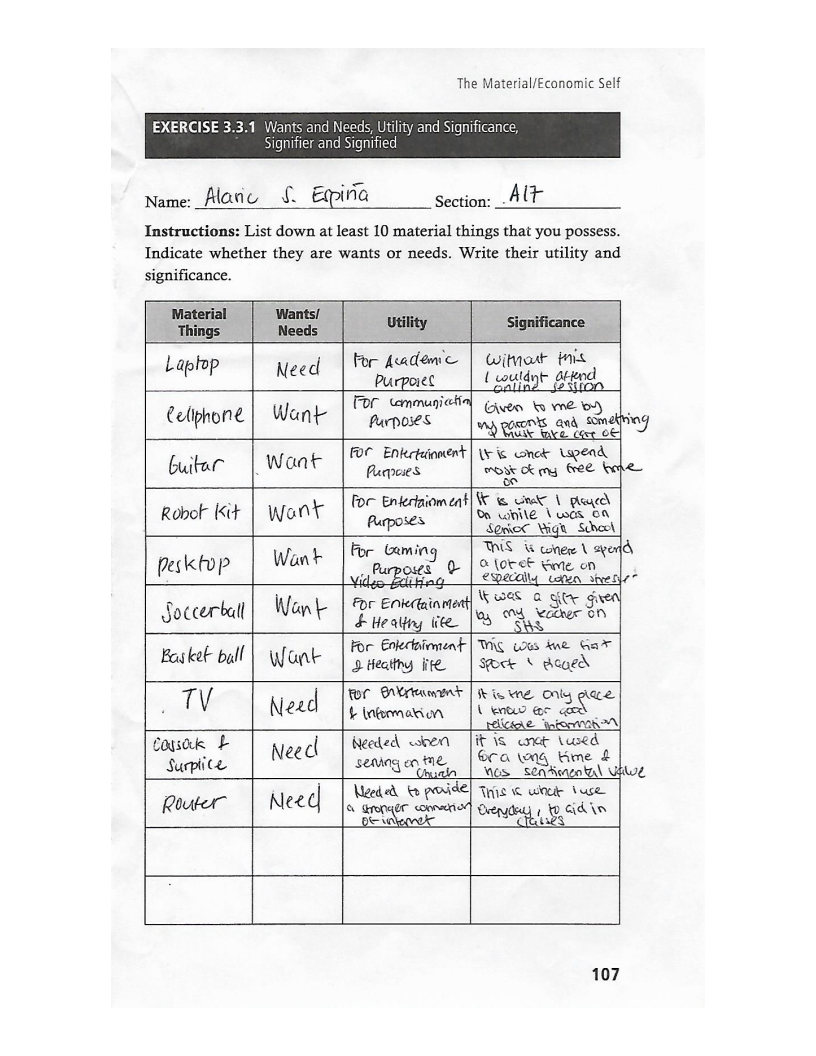 The Material/Economic Self
EXERCISE 3.3.1 Wants and Needs, Utility and Significance,
Signifier and Signified
Name: Alaric S. Espiña Section: A17
Instructions: List down at least 10 material things that you possess.
Indicate whether they are wants or needs. Write their utility and
significance.
Material
Things
Wants/
Needs
Utility
Significance
Laptop
Need
For Academic
Purposes
Without this
I wouldnt attend
online session
Cellphone
Want
For communication
Purposes
Given to me by
my parents and something
I must take care of
Guitar
Want
For Entertainment
Purposes
It is what I spend
most of my free time
on
Robot Kit
Want
For Entertainment
Purposes
It is what I played
On while I was on
Senior High School
Desktop
Want
For Gaming
Purposes &
Video Editing
This is where I spend
a lot of time on
especially when stress
Soccerball
Want
For Entertainment
& Healthy life
It was a gift given
by my teacher on
SHS
Basket ball
Want
For Entertainment
& Healthy life
This was the first
sport I played
TV
Need
For Entertainment
& Information
It is the only place
I know for good
reliable information
Cassock &
Surplice
Need
Needed when
serving on the
Church
it is what I used
for a long time &
has sentimental value
Router
Need
Needed to provide
a stronger connection
of internet
This is what I use
Everyday, to aid in
classes
107